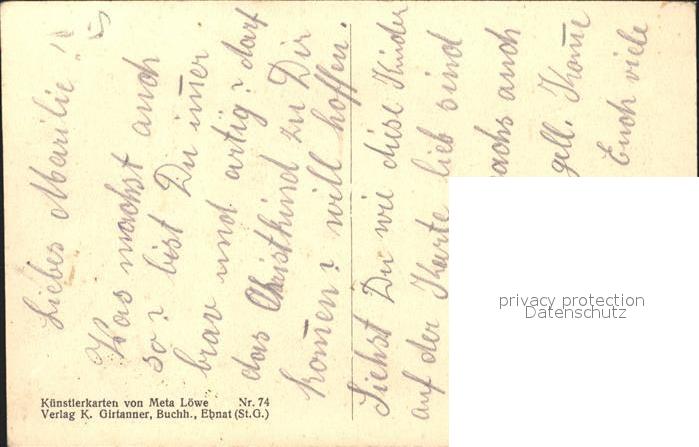 Liebes Marilie!
Was machst auch
so? bist Du im̄er
brav und artig? darf
das Christkind zu Dir
kom̄en? will hoffen.
Siehst Du wie diese Kinder
auf der Karte lieb sind
machs auch
gell. Kom̄e
Euch viele
Künstlerkarten von Meta Löwe Nr. 74
Verlag K. Girtanner, Buchh., Ebnat (St.G.)
privacy protection
Datenschutz